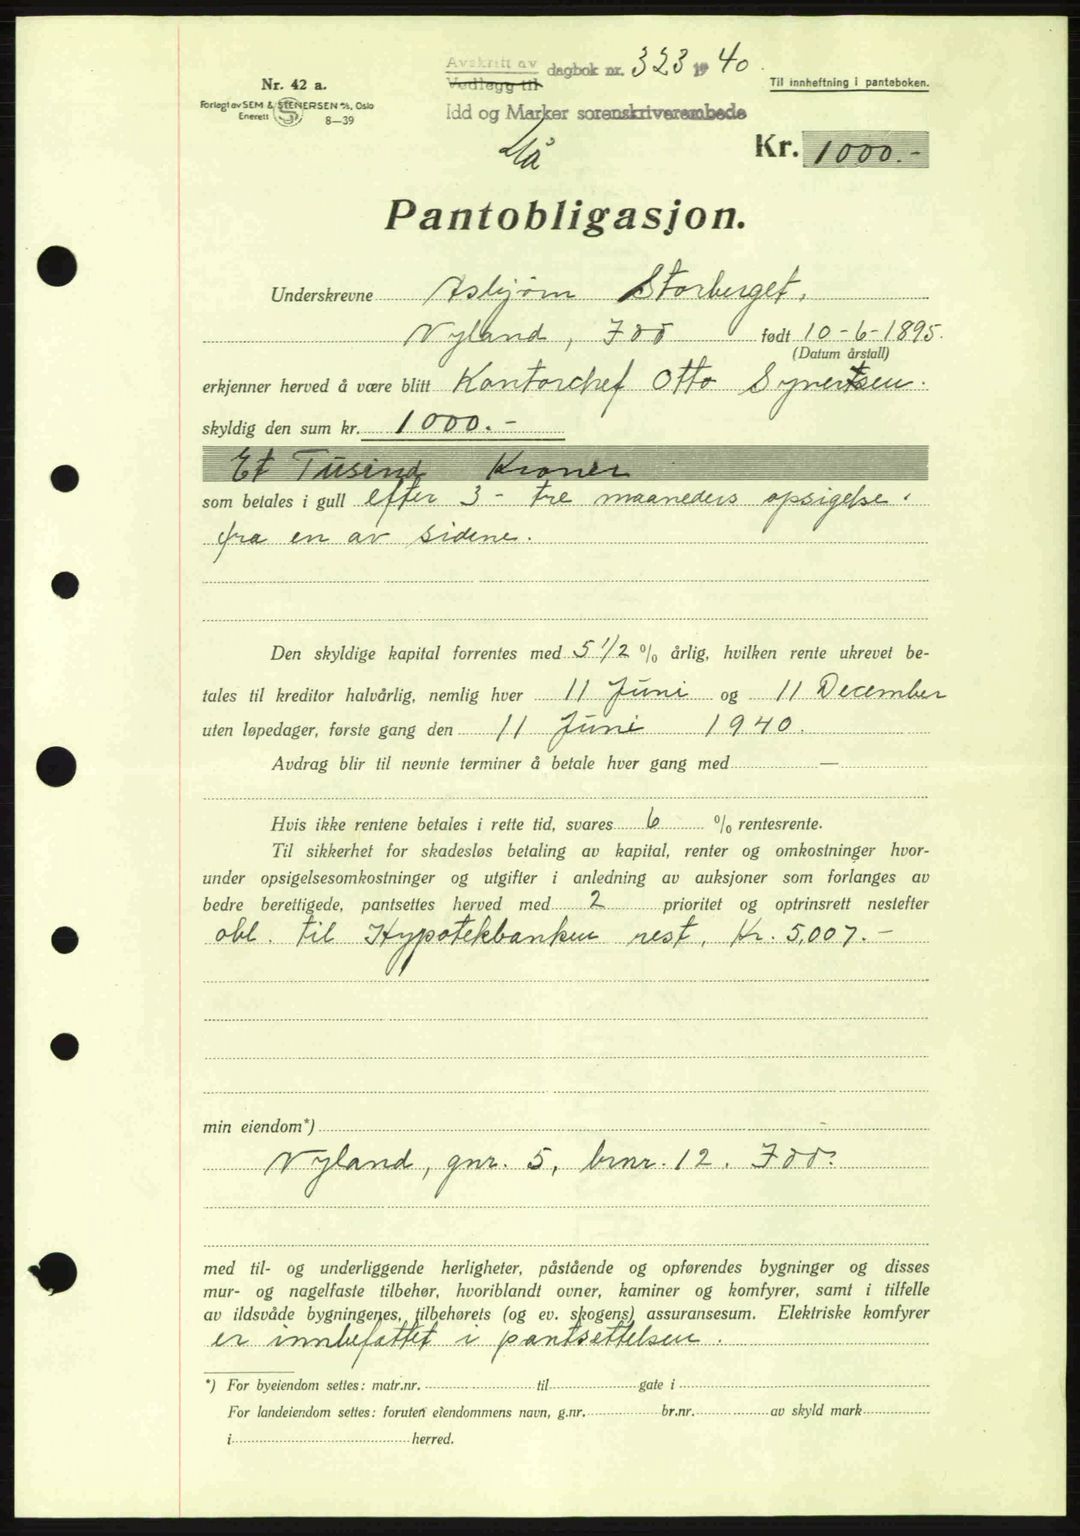 Avskrift av
Vedlegg til dagbok nr. 323 1940.
Idd og Marker sorenskriverembede
Nr. 42 a.
Forlagt av SEM & STENERSEN A/S, Oslo
Enerett 8—39
Til innheftning i panteboken.
Kr. 1000.-
Pantobligasjon.
Underskrevne Asbjørn Storberget,
Nyland, Idd født 10-6-1895.
(Datum årstall)
erkjenner herved å være blitt Kontorchef Otto Syvertsen.
skyldig den sum kr. 1000.-
Et Tusind Kroner
som betales i gull efter 3 - tre maaneders opsigelse
fra en av sidene.
Den skyldige kapital forrentes med 5 1/2 % årlig, hvilken rente ukrevet be-
tales til kreditor halvårlig, nemlig hver 11 Juni og 11 December
uten løpedager, første gang den 11 Juni 1940.
Avdrag blir til nevnte terminer å betale hver gang med —
Hvis ikke rentene betales i rette tid, svares 6 % rentesrente.
Til sikkerhet for skadesløs betaling av kapital, renter og omkostninger hvor-
under opsigelsesomkostninger og utgifter i anledning av auksjoner som forlanges av
bedre berettigede, pantsettes herved med 2 prioritet og optrinsrett nestefter
obl. til Hypotekbanken rest, Kr. 5,007.-
min eiendom*)
Nyland, gnr. 5, brnr. 12. Idd.
med til- og underliggende herligheter, påstående og opførendes bygninger og disses
mur- og nagelfaste tilbehør, hvoriblandt ovner, kaminer og komfyrer, samt i tilfelle
av ildsvåde bygningenes, tilbehørets (og ev. skogens) assuransesum. Elektriske komfyrer
er innbefattet i pantsettelsen.
*) For byeiendom settes: matr.nr. til gate i
For landeiendom settes: foruten eiendommens navn, g.nr. br.nr. av skyld mark
i herred.